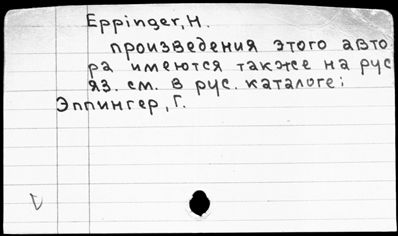 Eppinger, H.
произведения этого авто
ра имеются также на рус
яз. см. в рус. каталоге:
Эппингер, Г.